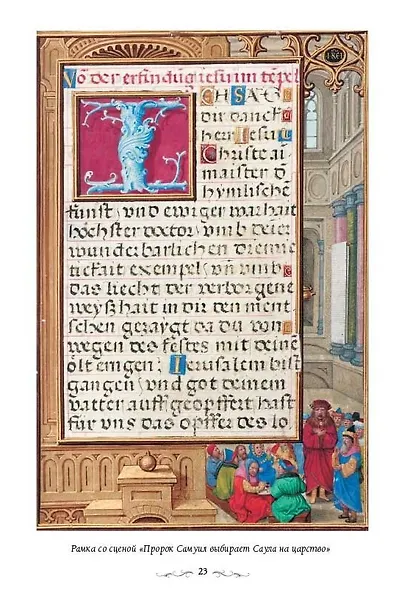 Võ der erfindũg iesu im tẽpel
ICH SAG
dir danck
herr Iesu
Christe ai
maister d
hymlischẽ
kunst, vnd ewiger warhait
höchster doctor, vmb deier
wunderbarlichen diemie
tickait exempel, vñ vmb
das liecht der verborgene
weyßhait in dir den ment
schen gezaygt da du von
wegen des festes mit deinẽ
ölt emgen: Ierusalem bist
gangen, vnd got deinem
vatter auff geopffert hast
für vns das opffer des lo
Рамка со сценой «Пророк Самуил выбирает Саула на царство»
23